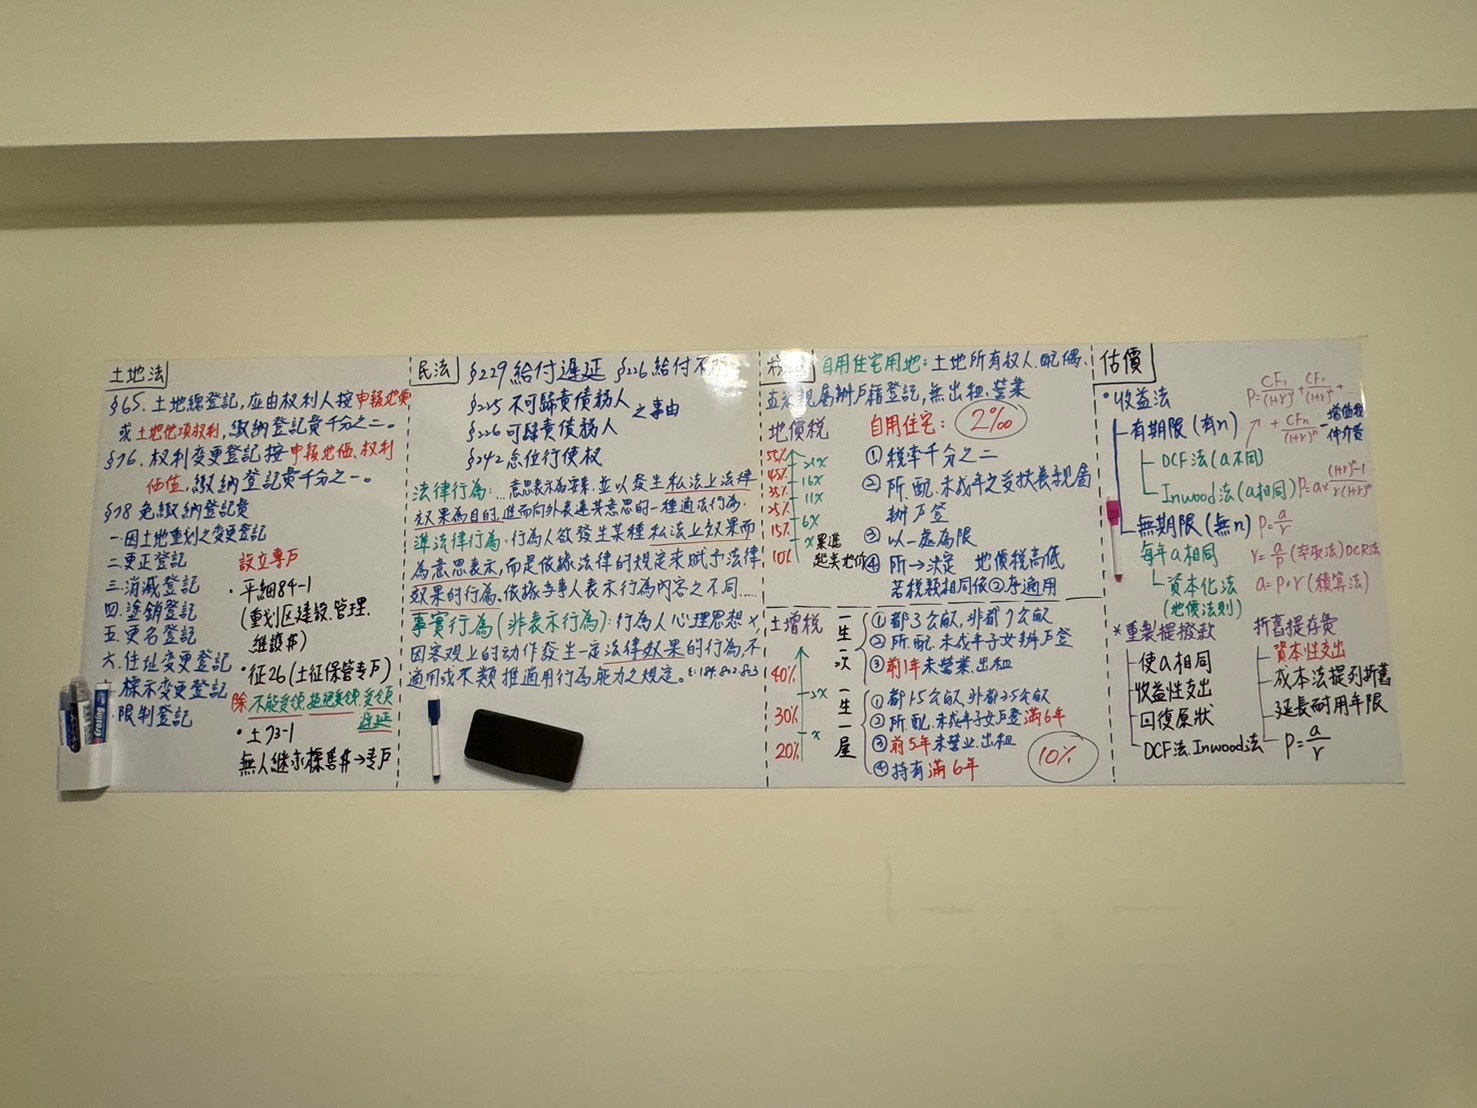 土地法
§65. 土地總登記,應由权利人按申報地價
或土地他項权利,繳納登記費千分之二。
§76. 权利变更登記,按申報地価、权利
価值,繳納登記費千分之一。
§78 免繳納登記費
一因土地重划之变更登記
二更正登記
三.消滅登記
四.塗銷登記
五.更名登記
六.住址变更登記
標示变更登記
限制登記
設立專戶
·平細84-1
(重划区建設.管理.
維護$)
·征26(土征保管专戶)
除不能受領.拒絕受領.受領
遲延
·土73-1
無人継承標售$→专戶
民法
§229給付遲延 §226給付不
§225 不可歸責債務人
§226 可歸責債務人
之事由
§242 怠位行使权
法律行為:...意思表示為要素,並以發生私法上法律
效果為目的,進而向外表達其意思的一種適法行為.
準法律行為:行為人欲發生某種私法上效果而
為意思表示,而是依據法律的規定來賦予法律
效果的行為。依據当事人表示行為內容之不同.....
事實行為(非表示行為):行為人心理思想×
因客观上的动作發生一定法律效果的行為,不
適用或不類推適用行為能力之規定。
自用住宅用地:土地所有权人、配偶、
直系親属辦戶籍登記,無出租.營業
地價税
自用住宅: 2‰
55%
45%
35%
25%
15%
10%
>21X
16X
11X
6X
X 累進
起点地价
①税率千分之二
②所.配.未成年之受扶養親属
辦戶登
③以一處為限
④所→決定 地價税高低
若税额相同依②序適用
土增税
40%
30%
20%
2X
X
一生一次
①都3公畝,非都7公畝
②所.配.未成年子女辦戶登
③前1年未營業.出租
一生一屋
①都1.5公畝,非都3.5公畝
②所、配、未成年子女戶登滿6年
③前5年未營业.出租
④持有滿6年
10%
估價
·收益法
有期限(有n)
DCF法(a不同)
Inwood法(a相同)
無期限(無n) P=a/r
每年a相同
資本化法
(地價法則)
r=a/p(萃取法)DCR法
a=P×r(積算法)
*重製提撥款
使a相同
收益性支出
回復原狀
DCF法.Inwood法
折舊提存費
資本性支出
成本法提列折舊
延長耐用年限
P=a/r